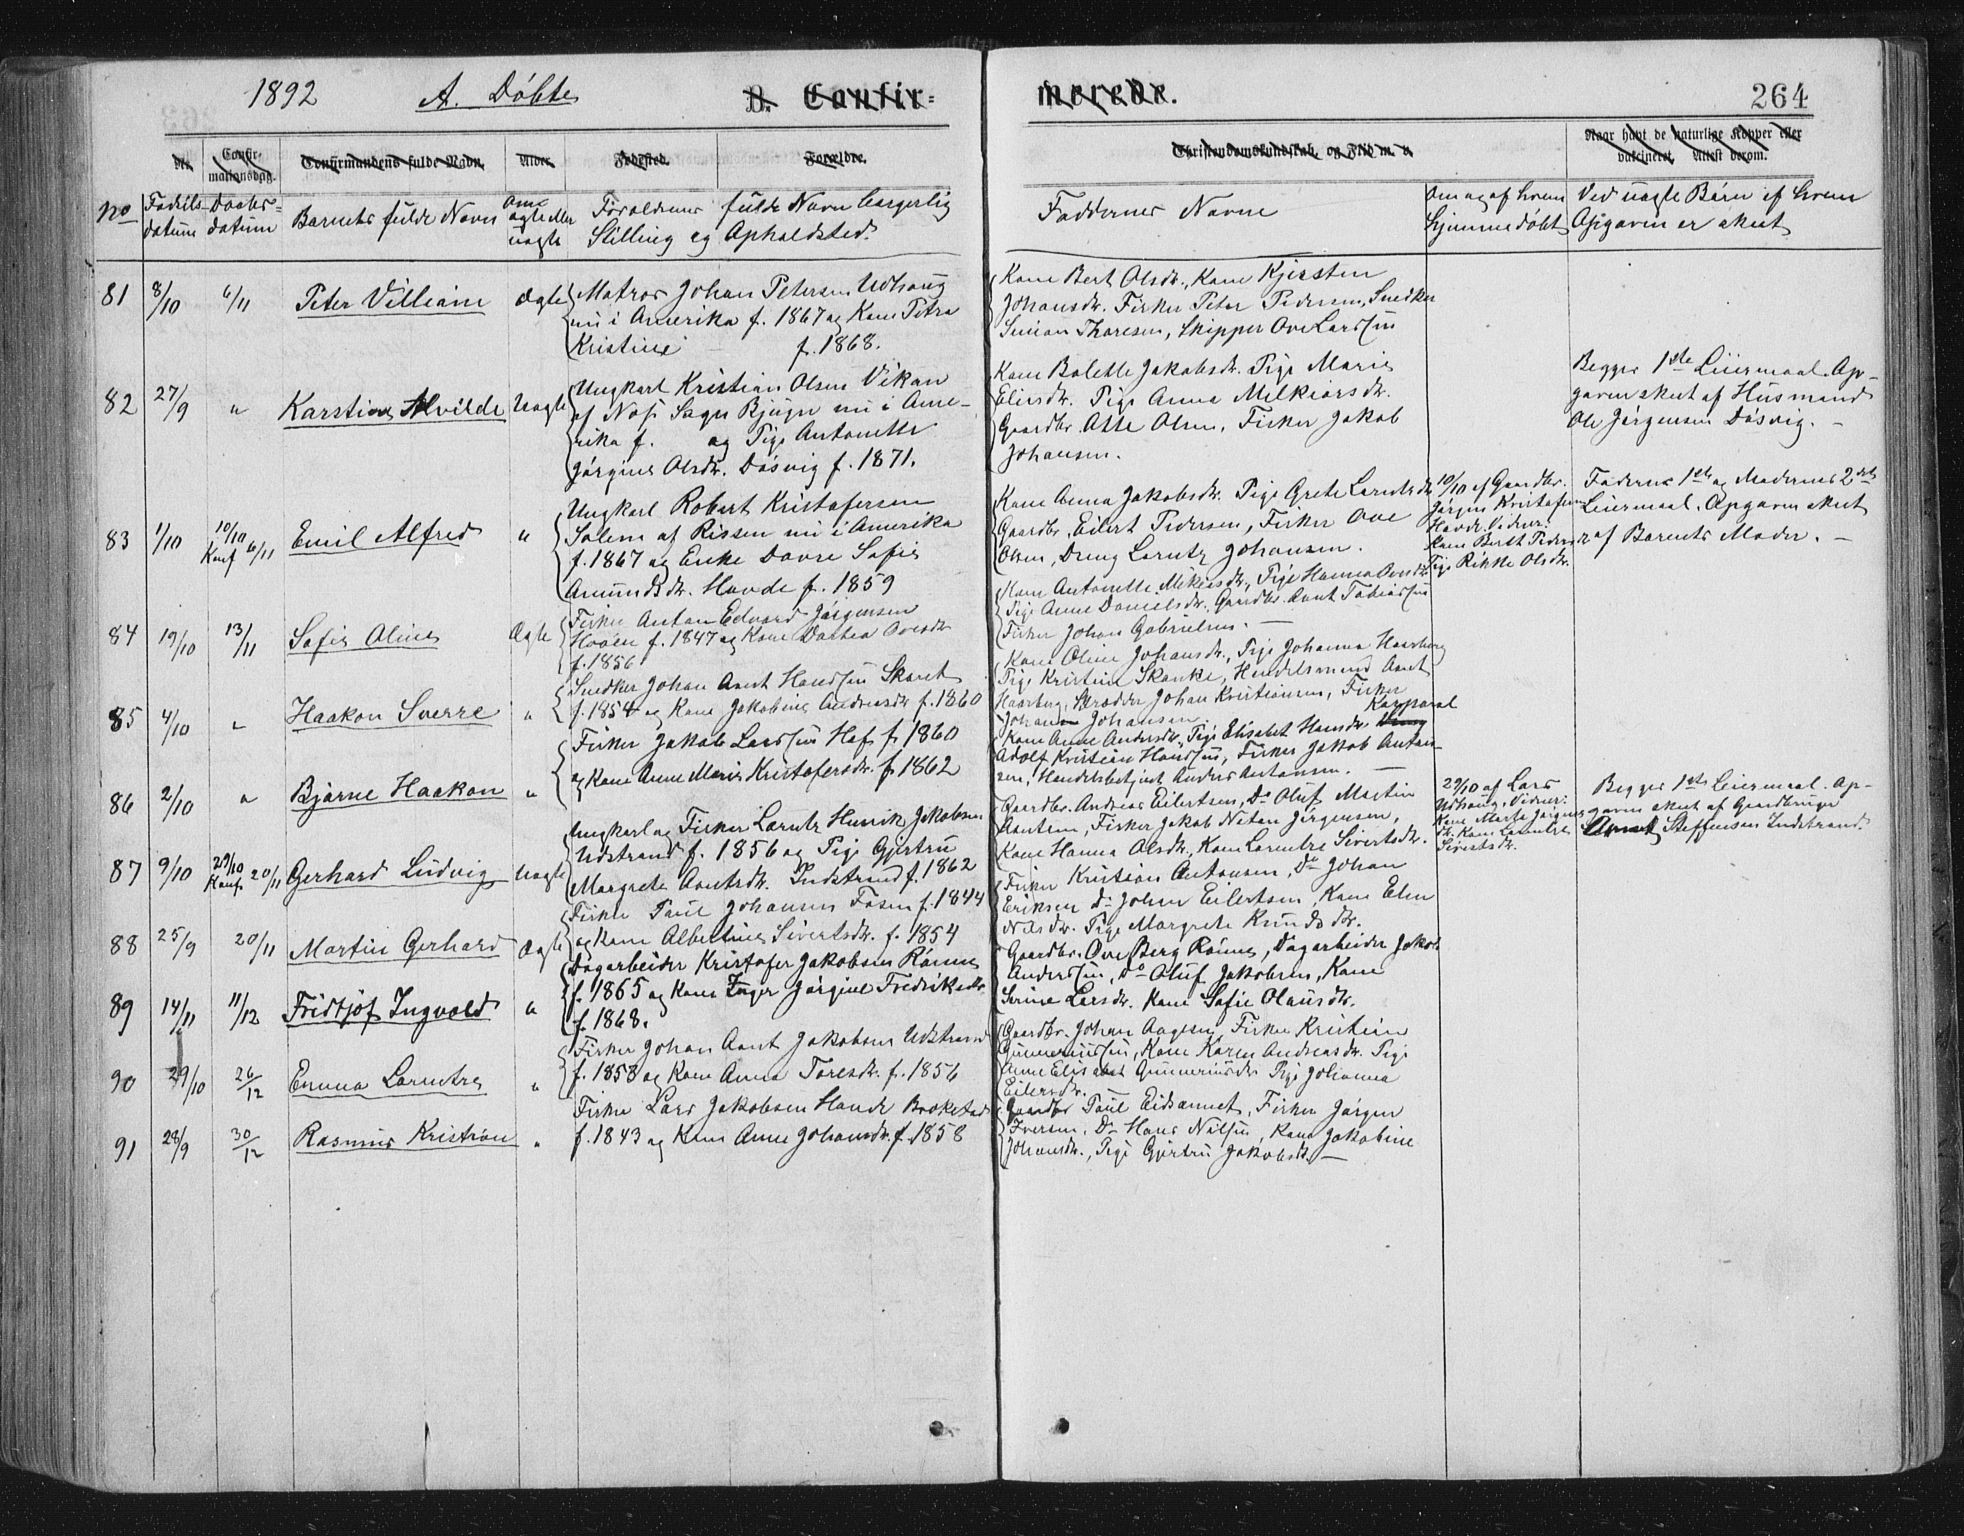 1892 A. Döbte B. Confirmerede. 264
Nr. Confirmationsdag. Confirmandens fulde Navn. Alder. Fødested. Forældre. Christendomskundskab og Flid m. v. Naar havt de naturlige Kopper eller vakcineret, Attest derom.
No Födsels datum Daabs= datum Barnets fulde Navn Om ægte eller uægte Forældrenes fulde Navn borgerlig Stilling og Opholdsted. Faddernes Navne Om og af hvem Hjemmedöbt Ved uægte Börn af hvem Opgaven er skeet
81 8/10 6/11 Peter Villiam Ægte Matros Johan Petersen Udhaug
nu i Amerika f. 1867 og Kone Petra
Kristine f. 1868.
Kone Berit Olsdr., Kone Kjersten
Johansdr. Fisker Peter Pedersen, Snedker
Simon Thoresen, Skipper Ove Larssen
82 27/9 " Karstine Alvilde Uægte Ungkarl Kristian Olsen Vikan
af Næs Sogn Bjugn nu i Ame-
rika f. og Pige Antonette
Jörgine Olsdr. Dösvig f. 1871.
Kone Bolette Jakobsdr. Pige Marie
Eliasdr. Pige Anna Melkiorsdr.
Gaardbr. Atte Olsen, Fisker Jakob
Johansen.
Begges 1ste Leiermaal. Op-
gaven skeet af Husmand
Ole Jörgensen Dösvig. -
83 1/10 10/10 Konf 6/11 Emil Alfred " Ungkarl Robert Kristofersen
Solem af Rissen nu i Amerika
f. 1867 og Enke Dorre Sofie
Amundsdr. Hovde f. 1859
Kone Anna Jakobsdr. Pige Grete Larntsdr.
Gaardbr. Eilert Pedersen, Fisker Ove
Olsen, Dreng Larntz Johansen.
10/10 af Gaardbr.
Jörgen Kristofersen
Hovde. Vidner:
Kone Berth Pedersdr
Pige Rikke Olsdr.
Faderns 1ste og Moderens 2det
Leiermaal. Opgaven skeet
af Barnets Moder. -
84 19/10 13/11 Sofie Oline Ægte Fisker Anton Edvard Jörgensen
Hoöen f. 1847 og Kone Dortea Ovesdr
f. 1856
Kone Antonette Mikiesdr, Pige Hanna Ovesdr
Pige Anne Danielsdr, Gaardbr. Arnt Tobiassen
Fisker Johan Gabrielsen. -
85 4/10 " Haakon Sverre " Snedker Johan Arnt Hanssen Skaret
f. 1854 og Kone Jakobine Andreasdr f. 1860
Kone Oline Johansdr., Pige Johanna Haarberg
Pige Kristine Skanke, Handelsmand Arnt
Haarberg, Skrædder Johan Kristiansen, Fisker
Johan Johansen
86 2/10 " Bjarne Haakon " Fisker Jakob Larssen Hof f. 1860
og Kone Anne Marie Kristofersdr. f. 1862
Kone Anne Andersdr., Pige Elisabet Hansdr. Korporal
Adolf Kristian Hanssen, Fisker Jakob Anton-
sen, Handelsbetjent Anders Antonsen. -
87 9/10 29/10 Konf. 20/11 Gerhard Ludvig Uægte Ungkarl og Fisker Larntz Henrik Jakobsen
Udstrand f. 1856 og Pige Gjertru
Margrete Arntsdr. Indstrand f. 1862
Gaardbr. Andreas Eilertsen, Do Oluf Martin
Arntsen, Fisker Jakob Natan Jörgensen,
Kone Hanna Olsdr, Kone Larntze Sivertsdr.
29/10 af Lars
Udhaug. Vidner:
Kone Marta Jörgens
dr. Kone Larntze
Sivertsdr.
Begges 1ste Leiermaal. Op-
gaven skeet af Gaardbruger
Arnt Steffensen Indstrand.
88 25/9 20/11 Martin Gerhard Ægte Fisker Paul Johansen Fosen f. 1844
og Kone Albertine Sivertsdr. f. 1854
Fisker Kristian Antonsen, Do Johan
Eriksen Do Johan Eilertsen, Kone Elen
Nilsdr. Pige Margrete Knudsdtr.
89 14/11 11/12 Fridtjof Ingvald " Dagarbeider Kristofer Jakobsen Rönne
f. 1865 og Kone Inger Jörgine Fredriksdtr.
f. 1868.
Gaardbr. Ove Berg Rönne, Dagarbeider Jakob
Anderssen, Do Oluf Jakobsen, Kone
Serine Larsdr. Kone Sofie Olausdtr.
90 29/10 26/12 Emma Larntze " Fisker Johan Arnt Jakobsen Udstrand
f. 1858 og Kone Anna Toresdr. f. 1856
Gaardbr. Johan Aagesen, Fisker Kristian
Gunnerussen, Kone Karen Andreasdr. Pige
Anne Elisabet Gunnerusdr Pige Johanna
Eilersdr.
91 28/9 30/12 Rasmus Kristian " Fisker Lars Jakobsen Hovde Brækstad
f. 1843 og Kone Anne Johansdr. f. 1858
Gaardbr Paul Eidsaunet, Fisker Jörgen
Iversen, Do Hans Nilsen, Kone Jakobine
Johansdr., Pige Gjertru Jakobsdr. -